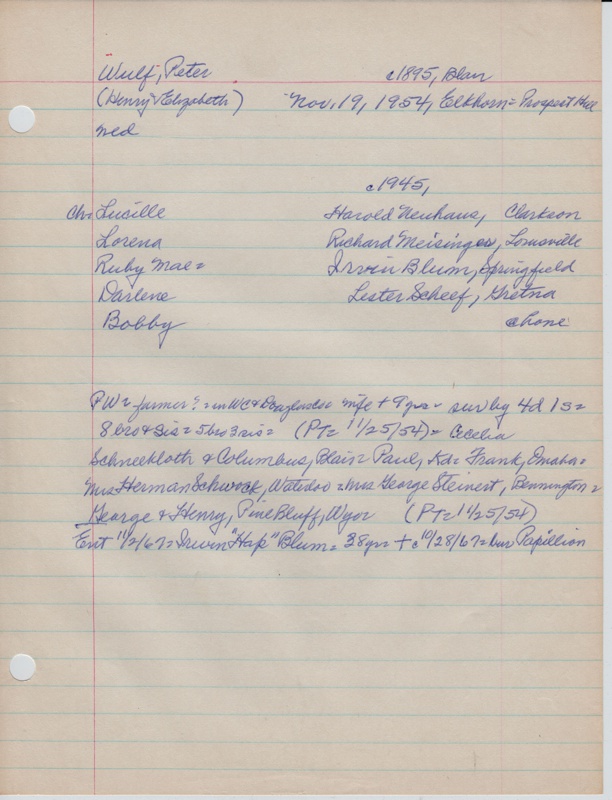 Wulf, Peter c1895, Blair
(Henry & Elizabeth) Nov. 19, 1954, Elkhorn = Prospect Hill
c1945,
Ch: Lucille Harold Neuhaus, Clarkson
Lorena Richard Meisinger, Louisville
Ruby Mae = Irvin Blum, Springfield
Darlene Lester Scheef, Gretna
Bobby @home
PW = farmer = in WC & Douglas co = wife + 9 yrs = surv by 4d 1s =
8 bro & sis = 5 bro 3 sis = (PT = 11/25/54) = Cecelia
Schneekloth & Columbus, Blair = Paul, = Frank, Omaha =
Mrs Herman Schwock, Waterloo = Mrs George Steinert, Bennington =
George & Henry, Pine Bluff, Wyo = (PT = 11/25/54)
Ent 11/2/67 = Irwin "Hap" Blum = 38 yrs + c10/28/67 = bur Papillion